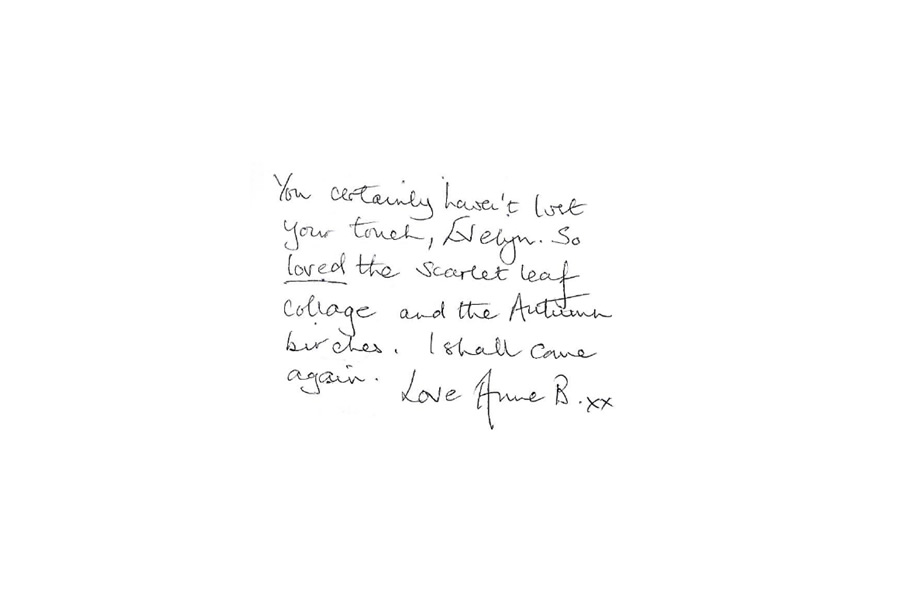 You certainly haven't lost
your touch, Evelyn. So
loved the scarlet leaf
collage and the Autumn
birches. I shall come
again. Love Anne B. xx